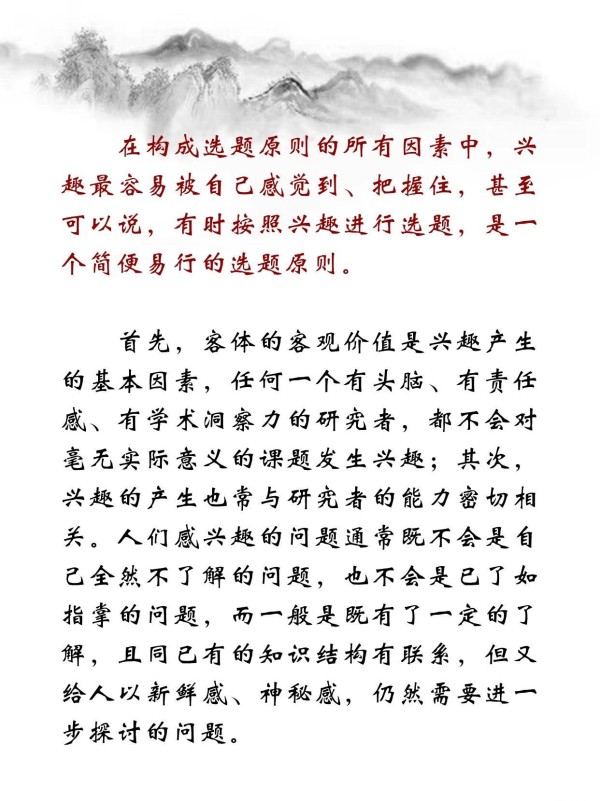 在构成选题原则的所有因素中，兴
趣最容易被自己感觉到、把握住，甚至
可以说，有时按照兴趣进行选题，是一
个简便易行的选题原则。
首先，客体的客观价值是兴趣产生
的基本因素，任何一个有头脑、有责任
感、有学术洞察力的研究者，都不会对
毫无实际意义的课题发生兴趣；其次，
兴趣的产生也常与研究者的能力密切相
关。人们感兴趣的问题通常既不会是自
己全然不了解的问题，也不会是已了如
指掌的问题，而一般是既有了一定的了
解，且同已有的知识结构有联系，但又
给人以新鲜感、神秘感，仍然需要进一
步探讨的问题。